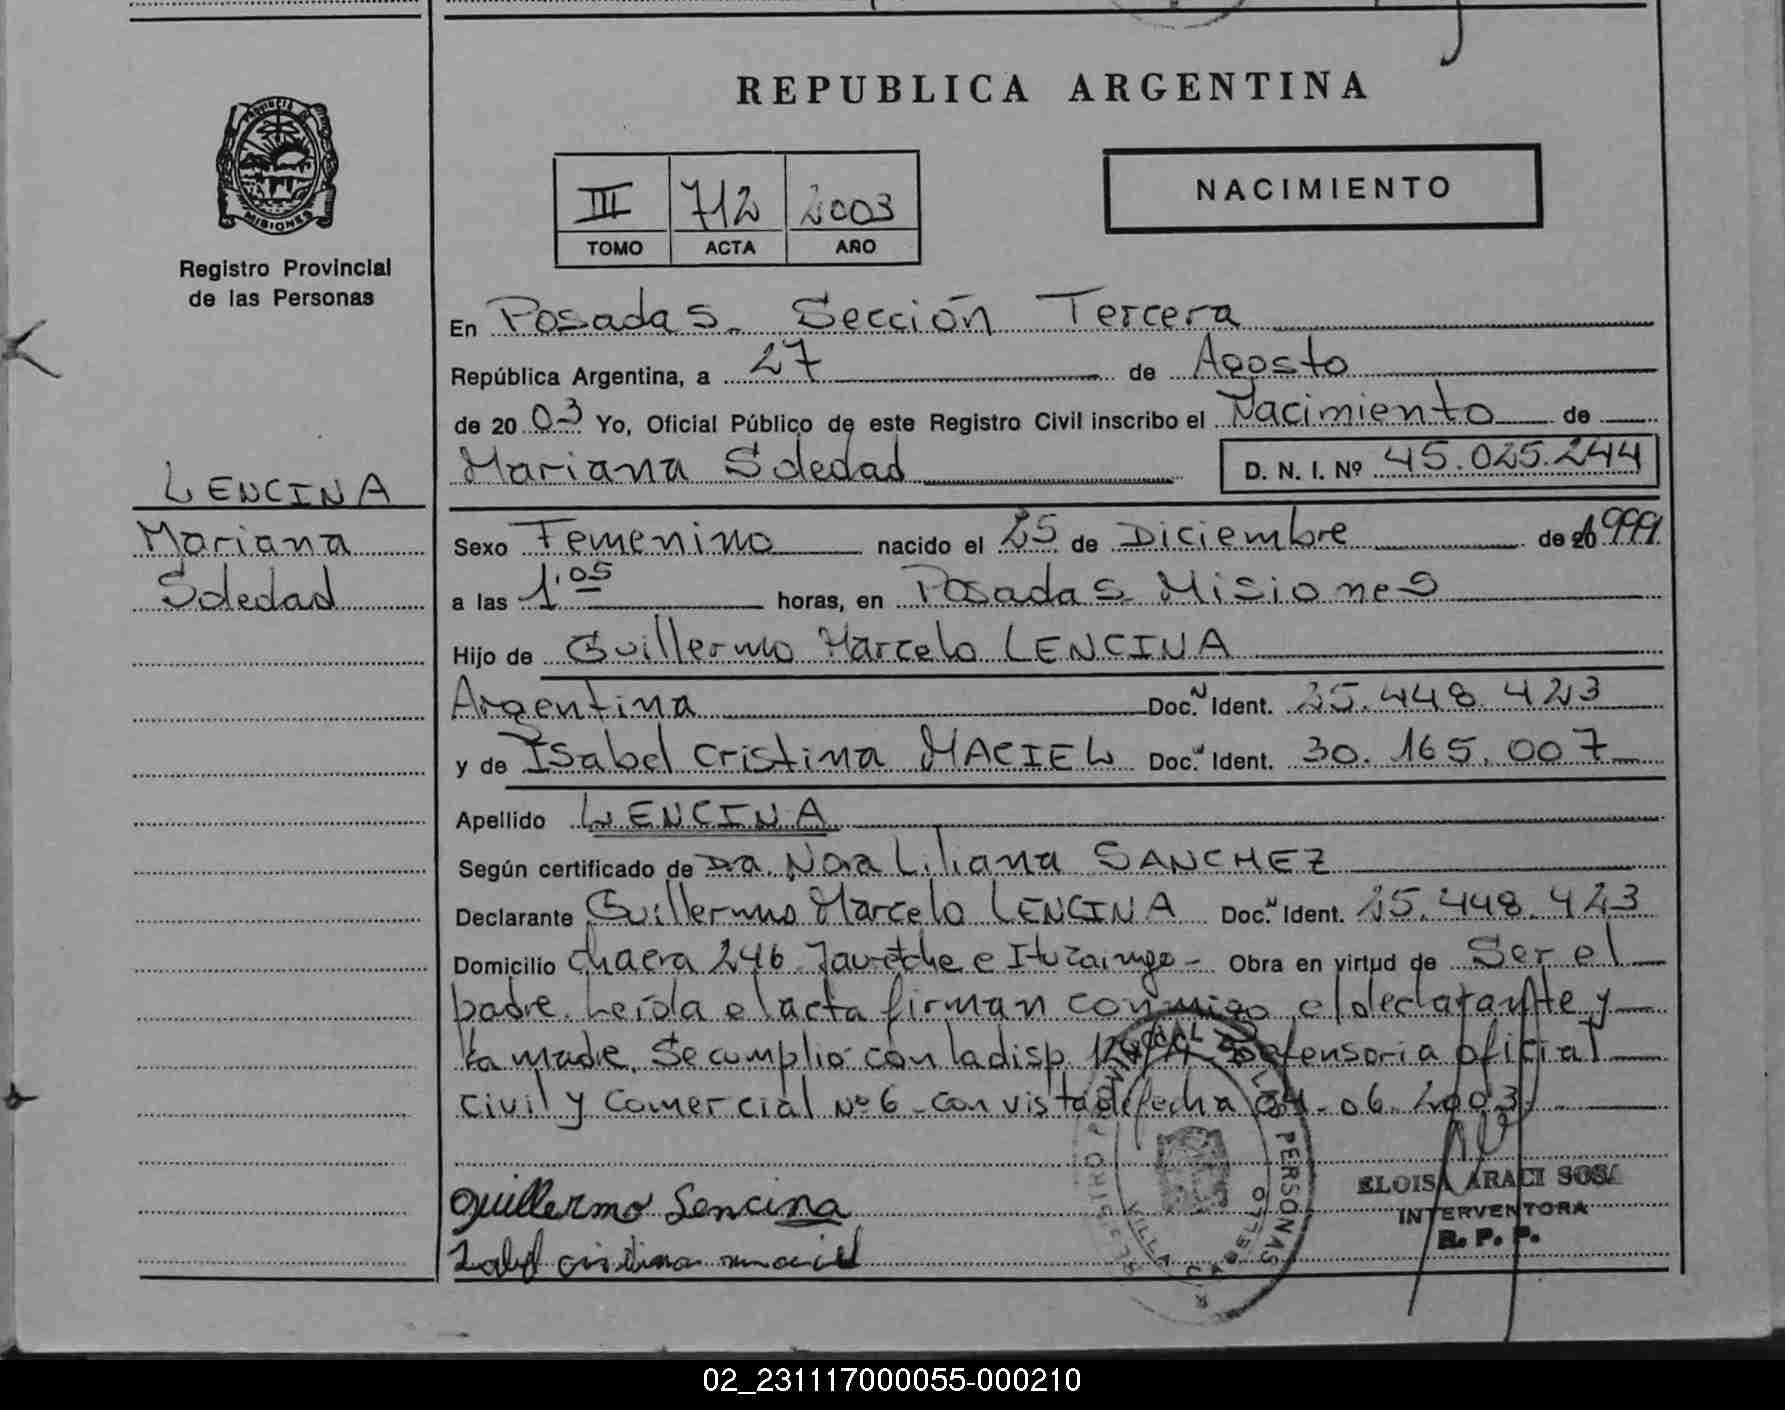 REPUBLICA ARGENTINA
PROVINCIA DE
MISIONES
Registro Provincial
de las Personas
III 712 2003
TOMO ACTA AÑO
NACIMIENTO
En Posadas. Sección Tercera
República Argentina, a 27 de Agosto
de 20 03 Yo, Oficial Público de este Registro Civil inscribo el Nacimiento de
Mariana Soledad D. N. I. Nº 45.025.244
LENCINA
Mariana
Soledad
Sexo Femenino nacido el 25 de Diciembre de 1999
a las 1.05 horas, en Posadas Misiones
Hijo de Guillermo Marcelo LENCINA
Argentina Doc. Ident. 25.448.423
y de Isabel Cristina MACIEL Doc. Ident. 30.165.007
Apellido LENCINA
Según certificado de Dra. Nora Liliana SANCHEZ
Declarante Guillermo Marcelo LENCINA Doc. Ident. 25.448.423
Domicilio chacra 246 e Ituzaingo - Obra en virtud de Ser el
padre. Leída el acta firman conmigo el declarante y
la madre. Se cumplio con la disp. Defensoria oficial
civil y Comercial Nº 6 - con vista de fecha 04-06-2003.
Guillermo Lencina
Isabel cristina maciel
REGISTRO PROVINCIAL DE LAS PERSONAS
VILLA CABELLO
ELOISA ARACI SOSA
INTERVENTORA
R. P. P.
02_231117000055-000210